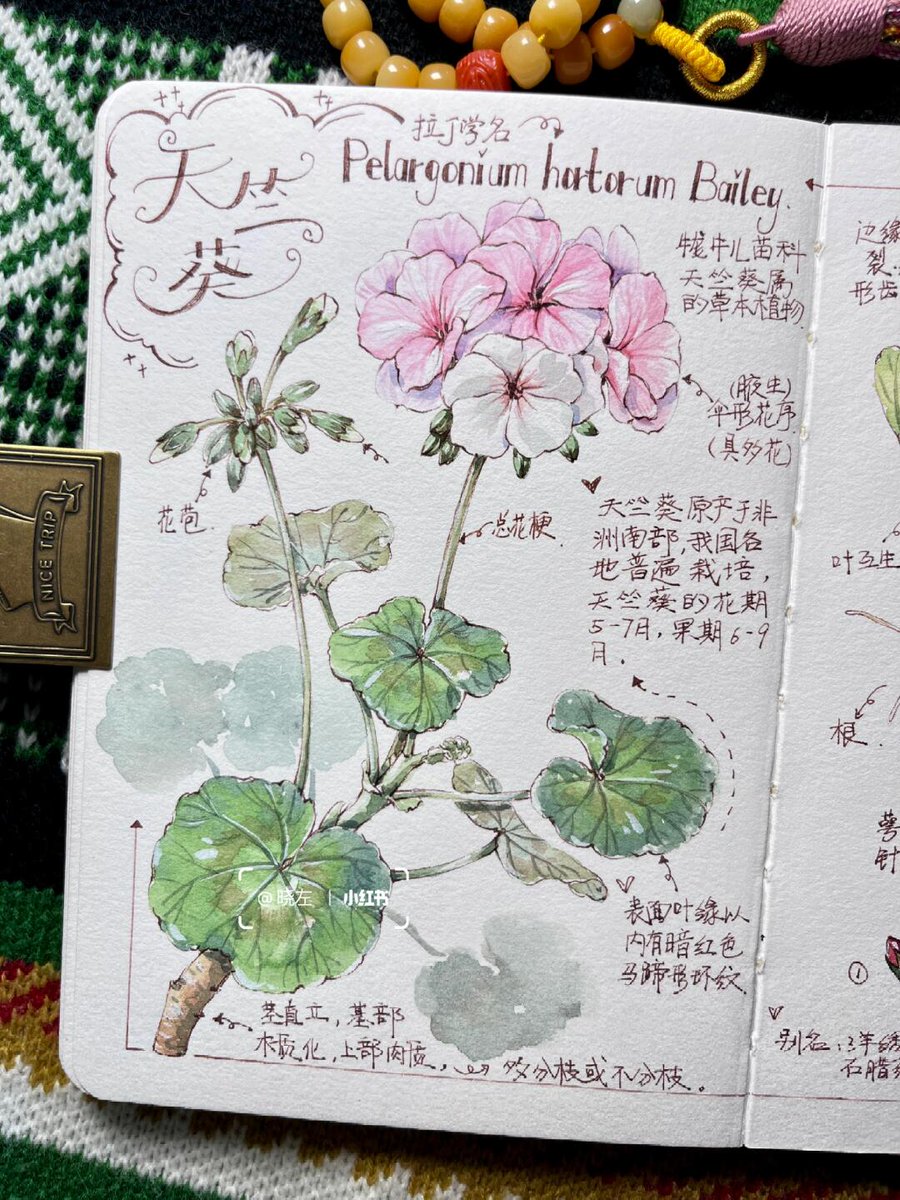 天竺
葵
拉丁学名
Pelargonium hortorum Bailey.
牻牛儿苗科
天竺葵属
的草本植物
(腋生)
伞形花序
(具多花)
花苞.
总花梗.
天竺葵原产于非
洲南部,我国各
地普遍栽培,
天竺葵的花期
5-7月,果期6-9
月.
NICE TRIP
@晓左 | 小红书
表面叶缘以
内有暗红色
马蹄形环纹.
茎直立,基部
木质化,上部肉质,
多分枝或不分枝。
边缘
裂
形齿
叶互生
根.
萼
针
①
别名:洋绣
石腊红